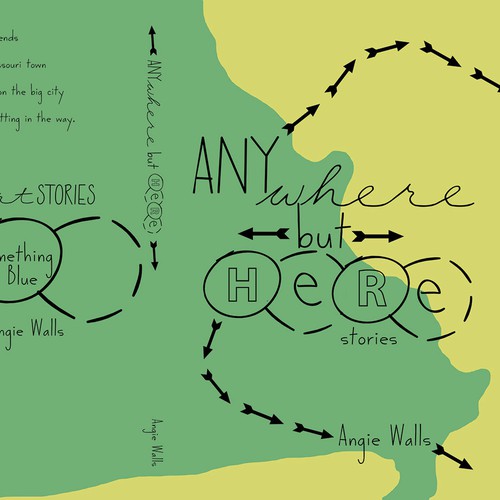 ends
souri town
on the big city
tting in the way.
at STORIES
mething
Blue
ngie Walls
ANYwhere but HeRe
Angie Walls
ANY
where
but
HeRe
stories
Angie Walls